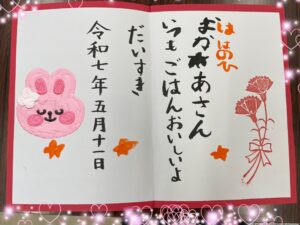 ははのひ
おかあさん
いつもごはんおいしいよ
だいすき
令和七年五月十一日